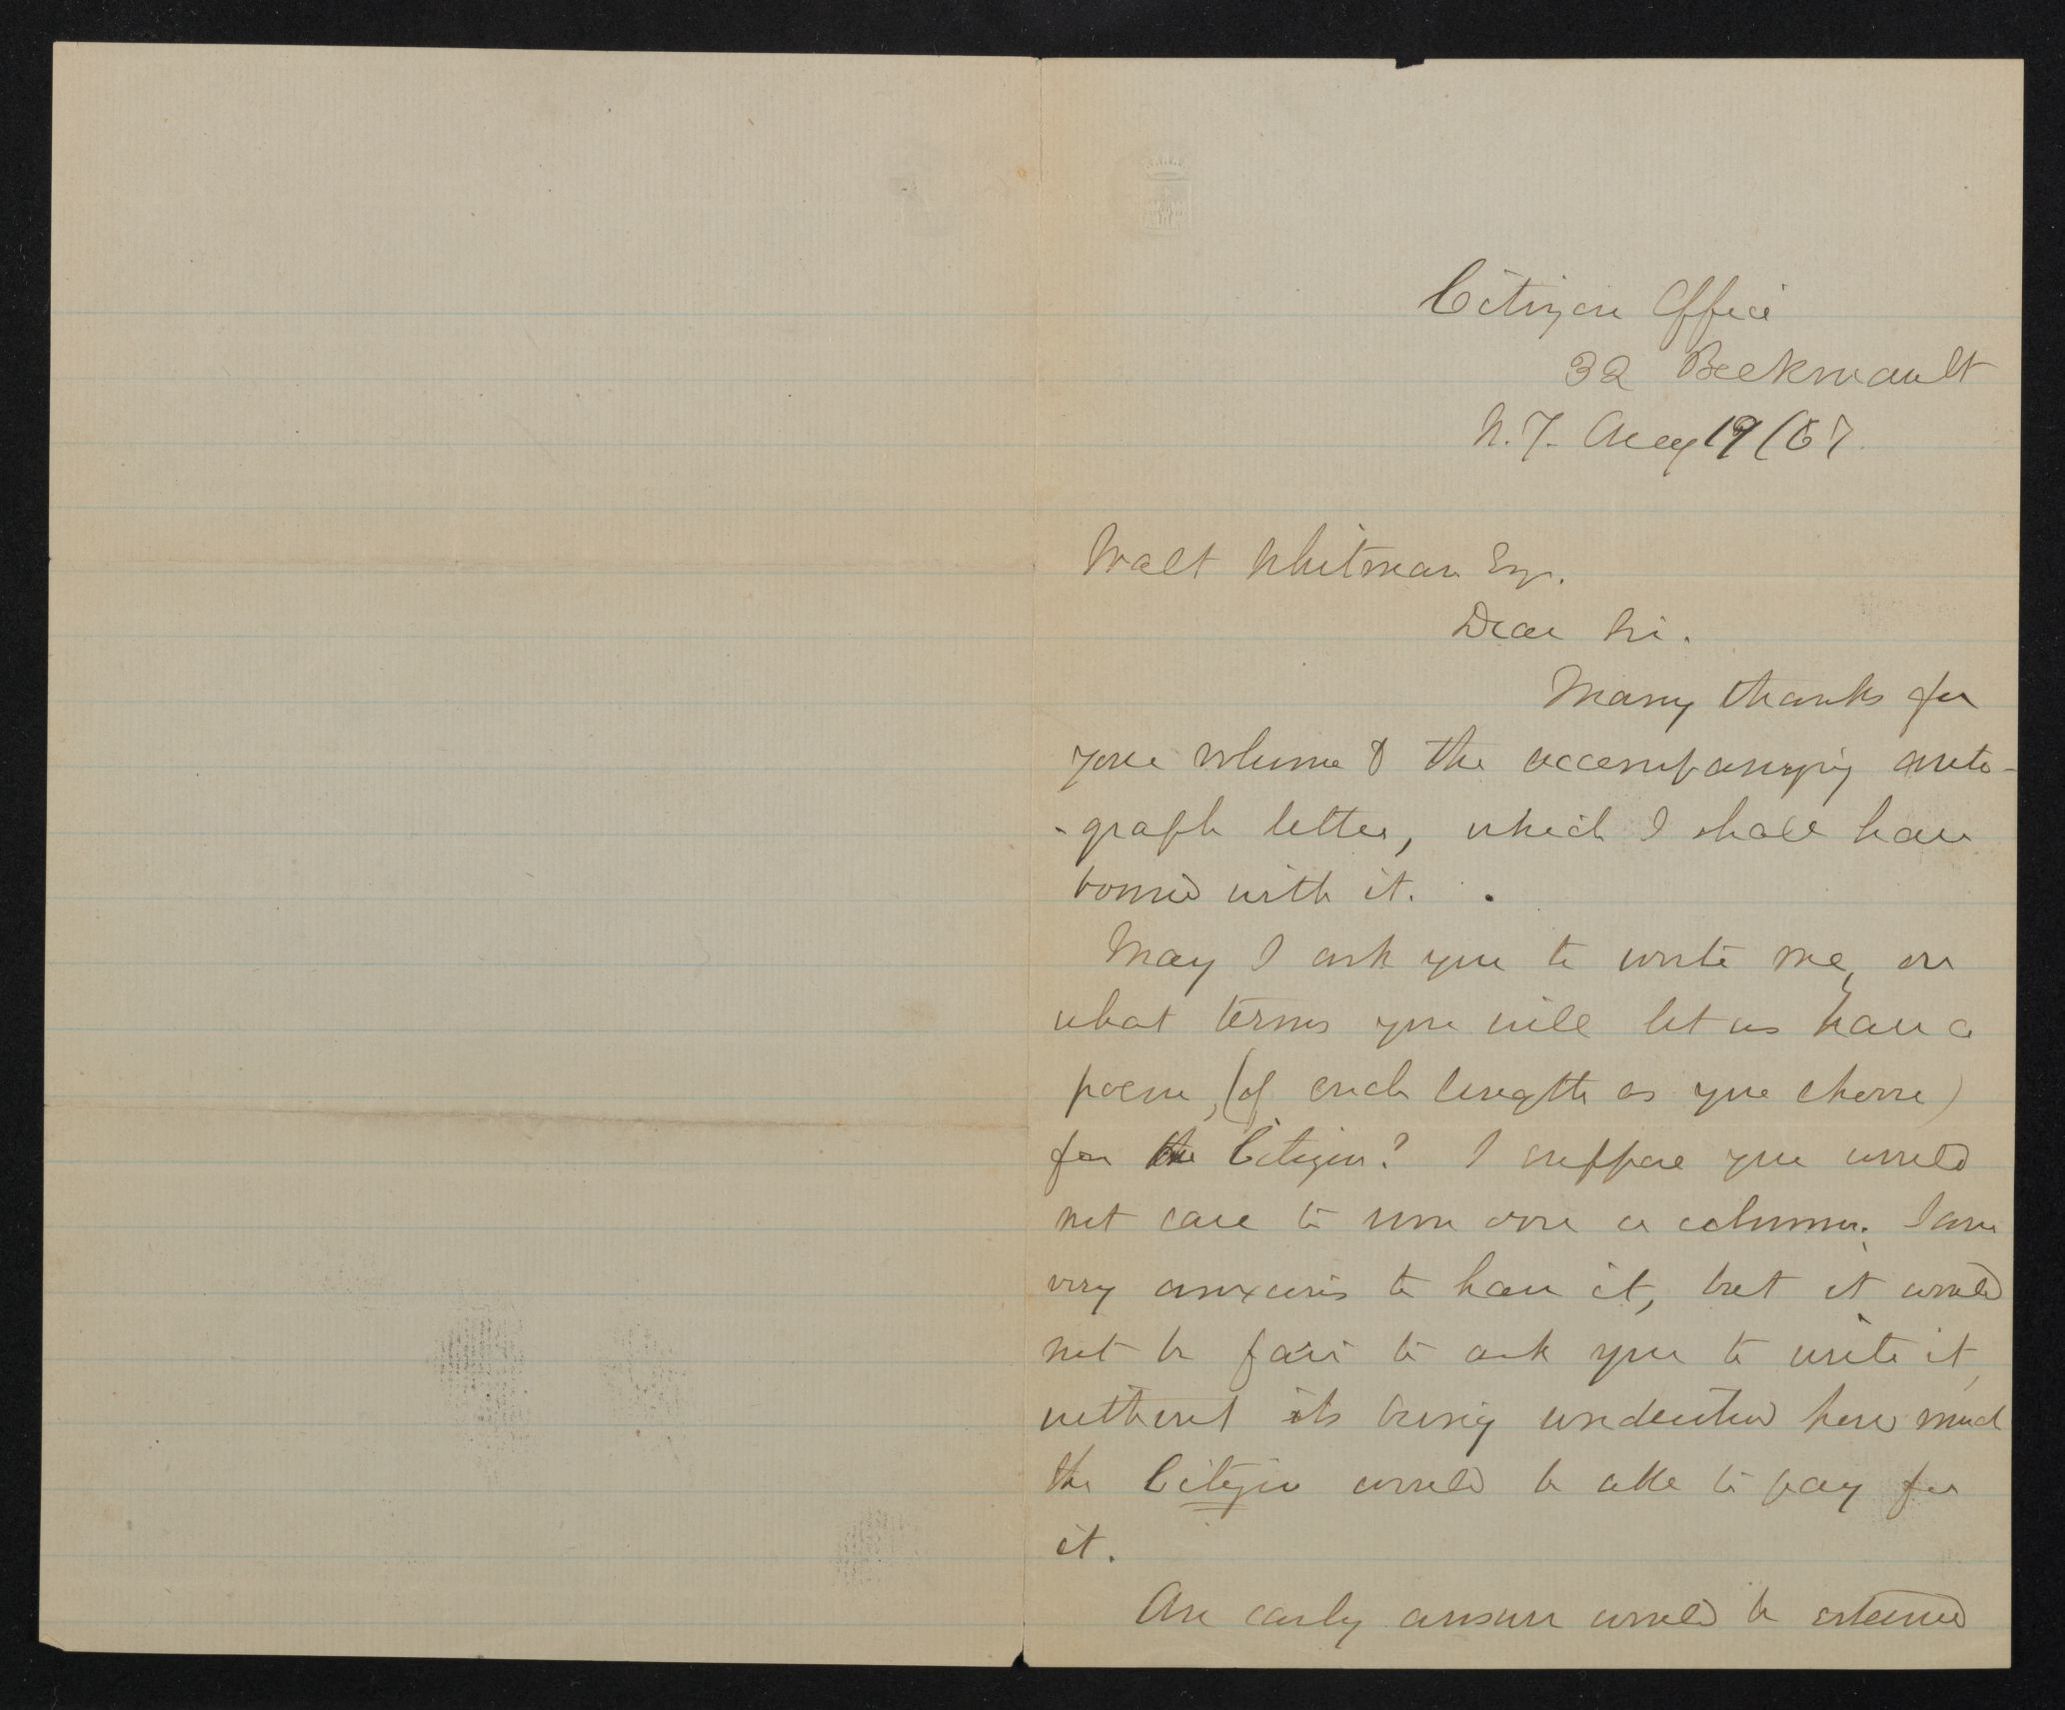 Citizen Office
32 Beekman St
N.Y. Aug 19/67
Walt Whitman Esq.
Dear Sir.
Many thanks for
your volume & the accompanying auto-
-graph letter, which I shall have
bound with it.
May I ask you to write me, on
what terms you will let us have a
poem, (of such length as you choose)
for the Citizen? I suppose you would
not care to run over a column. I am
very anxious to have it, but it would
not be fair to ask you to write it,
without its being understood how much
the Citizen would be able to pay for
it.
An early answer would be esteemed